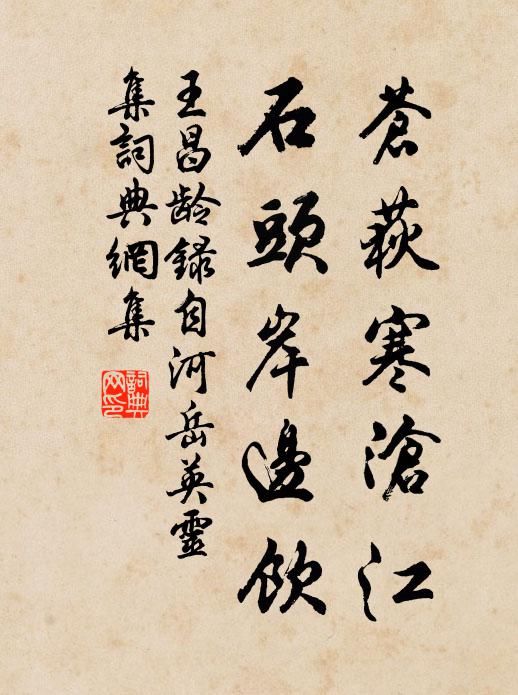 蒼荻寒滄江
石頭岸邊飲
王昌龄録自河岳英靈
集詞典網集
詞典
网印